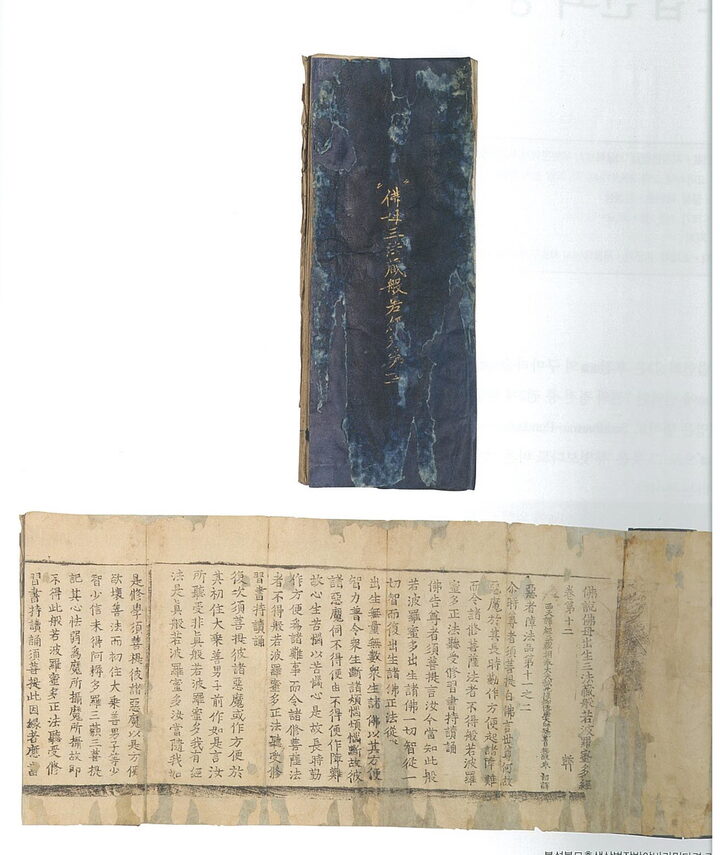 佛母三法藏般若
佛說佛母出生三法藏般若波羅蜜多經
卷第十二 弊
惡者障法品第十一之二
尒時尊者須菩提白佛言世尊何故
惡魔於其長時勤作方便起諸障難
而令諸修菩薩法者不得般若波羅
蜜多正法聽受修習書持讀誦
佛告尊者須菩提言汝今當知此般
若波羅蜜多出生諸佛一切智從一
切智而復出生諸佛正法從
出生無量無數衆生諸佛以其方便
智力普令衆生斷諸煩惱煩惱斷故彼
諸惡魔伺不得便由不得便作障難
故心生苦惱以苦惱心是故長時勤
作方便為諸難事而令諸修菩薩法
者不得般若波羅蜜多正法聽受修
習書持讀誦
復次須菩提彼諸惡魔或作方便於
其初住大乘善男子前作如是言汝
所聽受非真般若波羅蜜多我有經
法是真般若波羅蜜多汝當隨我如
是修學須菩提彼諸惡魔以是方便
欲壞善法而初住大乘善男子等少
智少信未得阿耨多羅三藐三菩提
記其心怯弱為魔所攝魔所攝故即
不得此般若波羅蜜多正法聽受修
習書持讀誦須菩提此因緣者應當